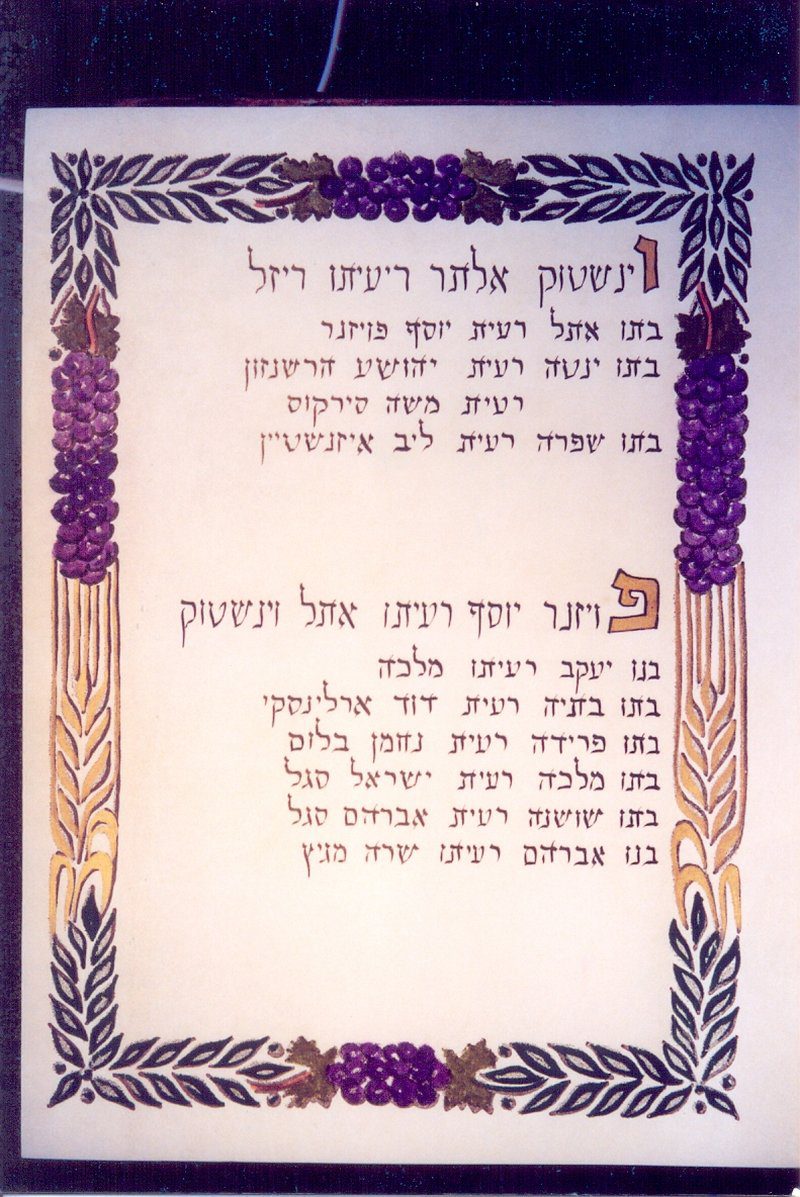 וינשטוק אלתר ריעיתו ריזל
בתו אתל רעית יוסף פויזנר
בתו ינטה רעית יהושע הרשנזון
רעית משה סירקוס
בתו שפרה רעית ליב איזנשטיין
פויזנר יוסף רעיתו אתל וינשטוק
בנו יעקב רעיתו מלכה
בתו בתיה רעית דוד ארלינסקי
בתו פרידה רעית נחמן בלום
בתו מלכה רעית ישראל סגל
בתו שושנה רעית אברהם סגל
בנו אברהם רעיתו שרה מגיץ